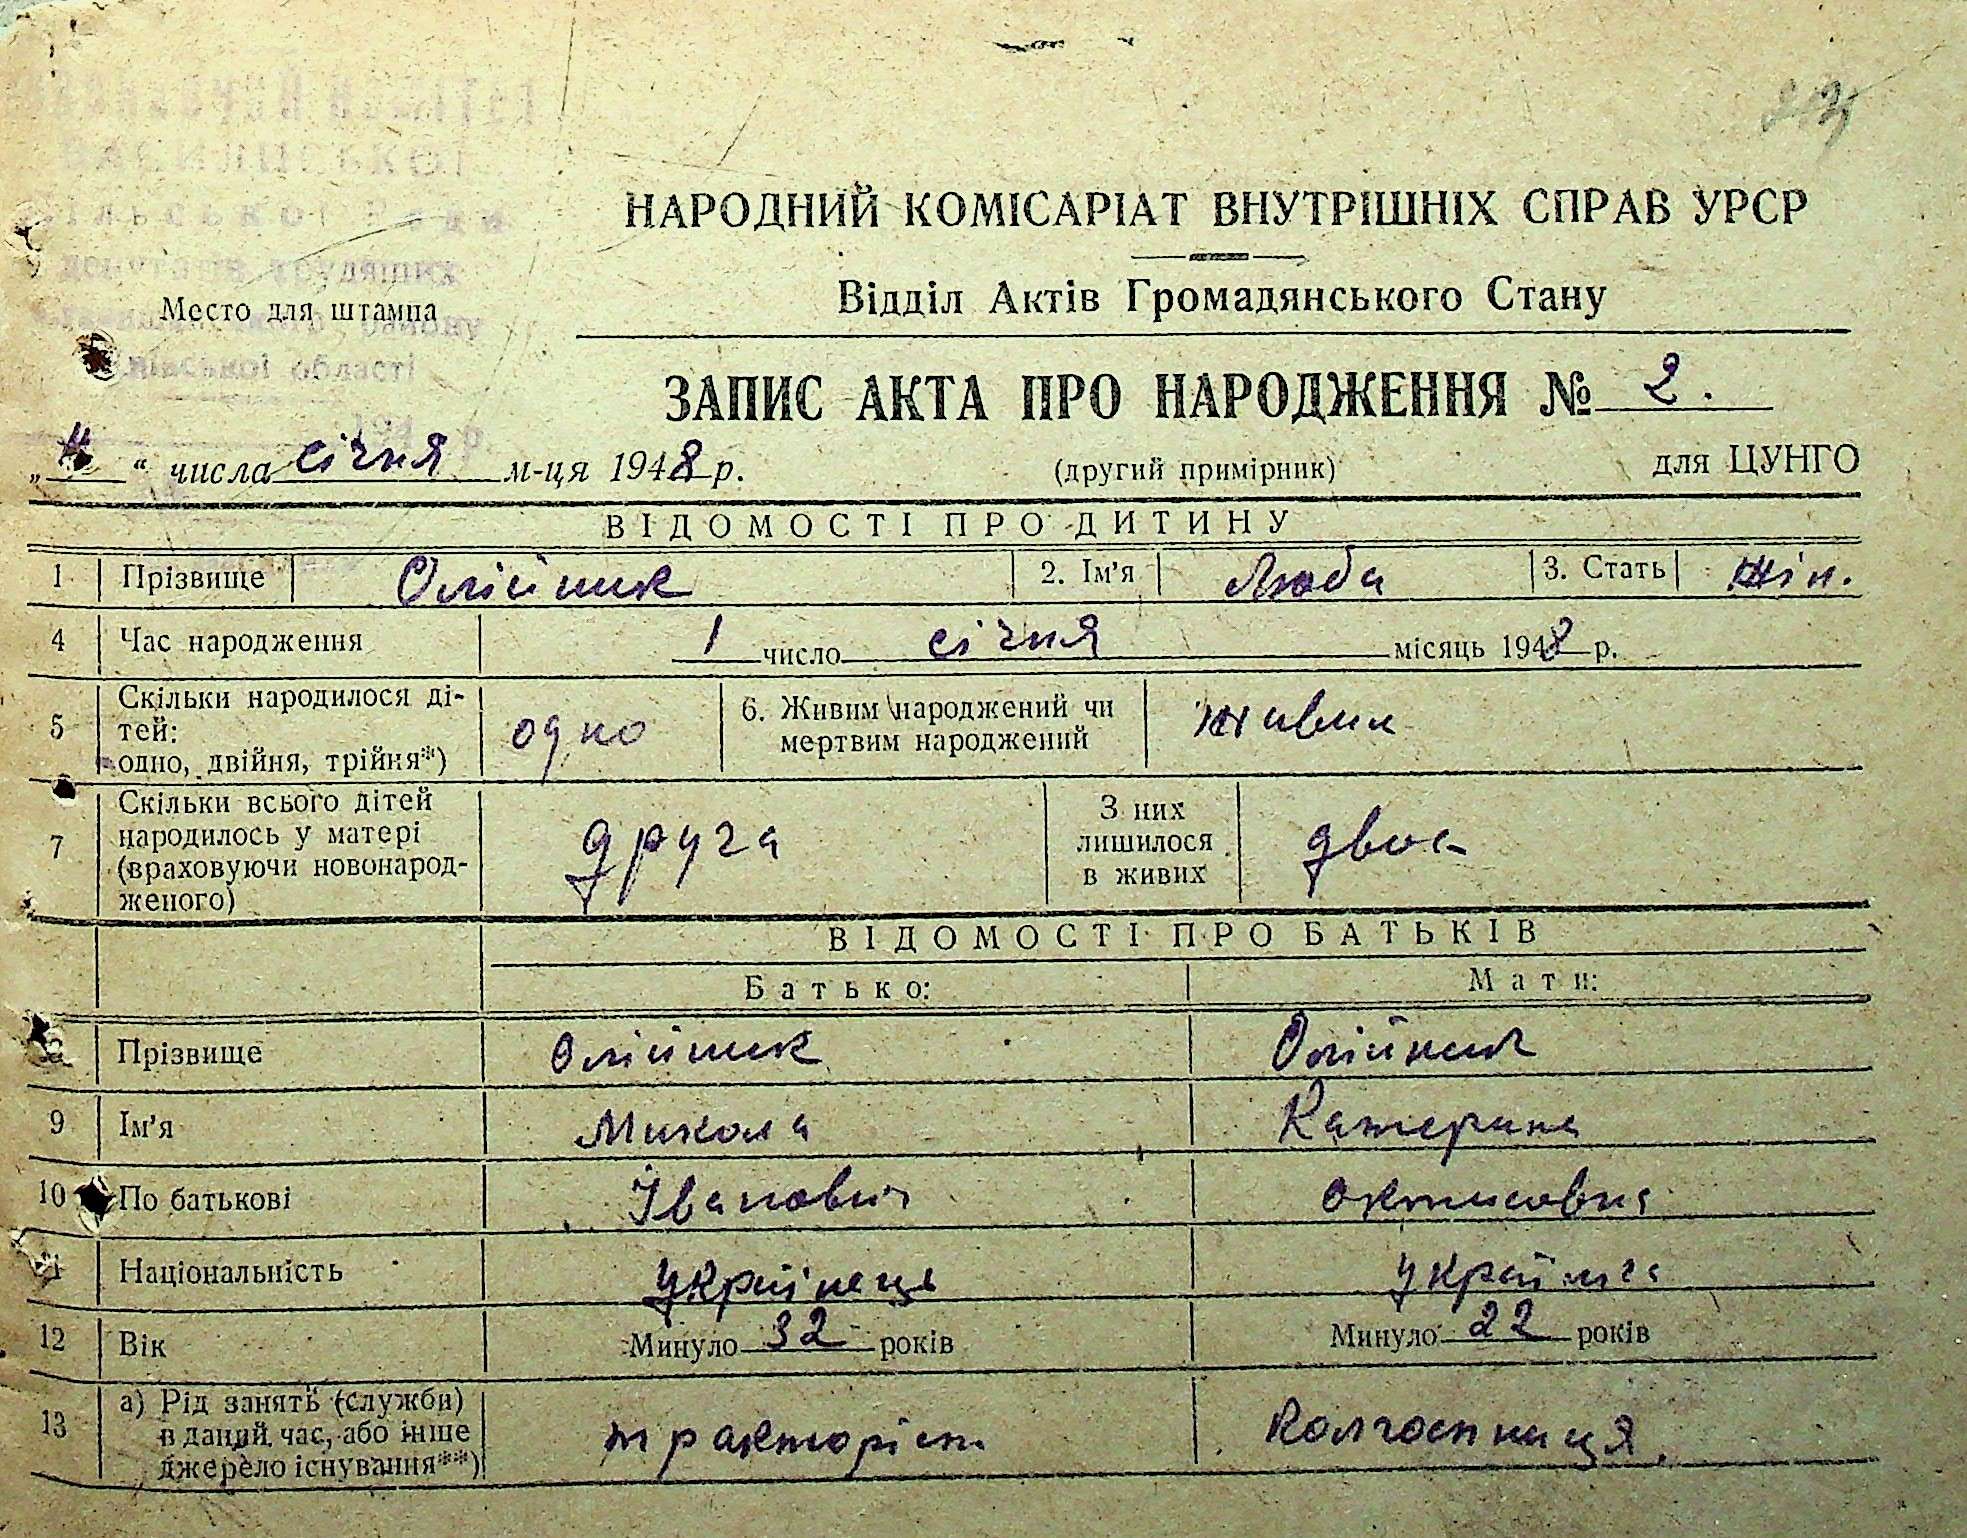 НАРОДНИЙ КОМІСАРІАТ ВНУТРІШНІХ СПРАВ УРСР
Відділ Актів Громадянського Стану
депутатів трудящих
Место для штампа
області
ЗАПИС АКТА ПРО НАРОДЖЕННЯ № 2.
„ “ числа січня м-ця 1948 р.
(другий примірник)
для ЦУНГО
ВІДОМОСТІ ПРО ДИТИНУ
1 Прізвище Олійник 2. Ім'я Люба 3. Стать жін.
4 Час народження 1 число січня місяць 1948 р.
5 Скільки народилося ді-
тей:
одно, двійня, трійня*)
одно
6. Живим народжений чи
мертвим народжений
живим
7 Скільки всього дітей
народилось у матері
(враховуючи новонарод-
женого)
друга
З них
лишилося
в живих
двоє
ВІДОМОСТІ ПРО БАТЬКІВ
Батько: Мати:
Прізвище Олійник Олійник
9 Ім'я Микола Катерина
10 По батькові Іванович
Національність українець українка
12 Вік Минуло 32 років Минуло 22 років
13 а) Рід занять (служби)
в даний час, або інше
джерело існування**)
тракторіст Колгоспниця.